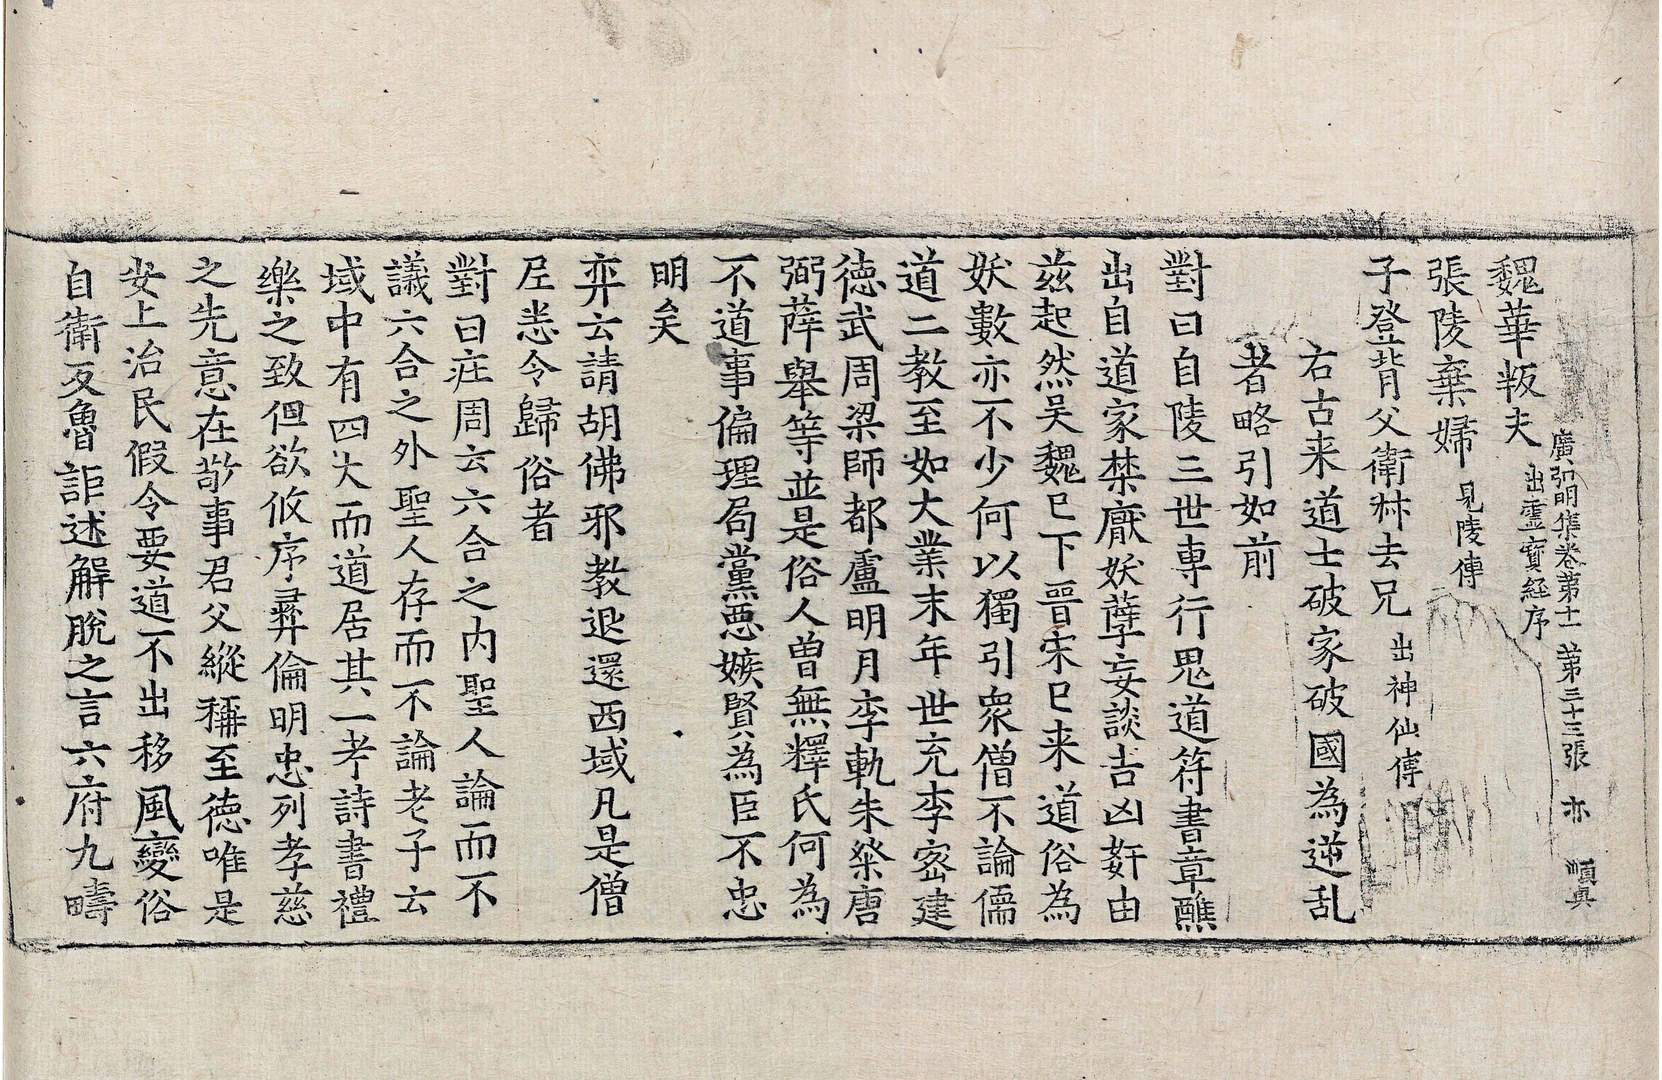 廣弘明集卷第十一 第三十三張 亦 順興
魏華叛夫 出靈寶經序
張陵棄婦 見陵傳
子登背父衛叔去兄 出神仙傳
右古来道士破家破國為逆乱
者略引如前
對曰自陵三世専行鬼道符書章醮
出自道家禁厭妖孽妄談吉凶姧由
茲起然吴魏巳下晉宋巳来道俗為
妖數亦不少何以獨引衆僧不論儒
道二教至如大業末年世充李密建
徳武周梁師都盧明月李軌朱粲唐
弼薛舉等並是俗人曽無釋氏何為
不道事偏理局黨惡嫉賢為臣不忠
明矣
弈云請胡佛邪教退還西域凡是僧
尼悉令歸俗者
對曰庄周云六合之内聖人論而不
議六合之外聖人存而不論老子云
域中有四大而道居其一考詩書禮
樂之致但欲攸序彞倫明忠列孝慈
之先意在敬事君父縱稱至德唯是
安上治民假令要道不出移風變俗
自衛反魯詎述解脫之言六府九疇